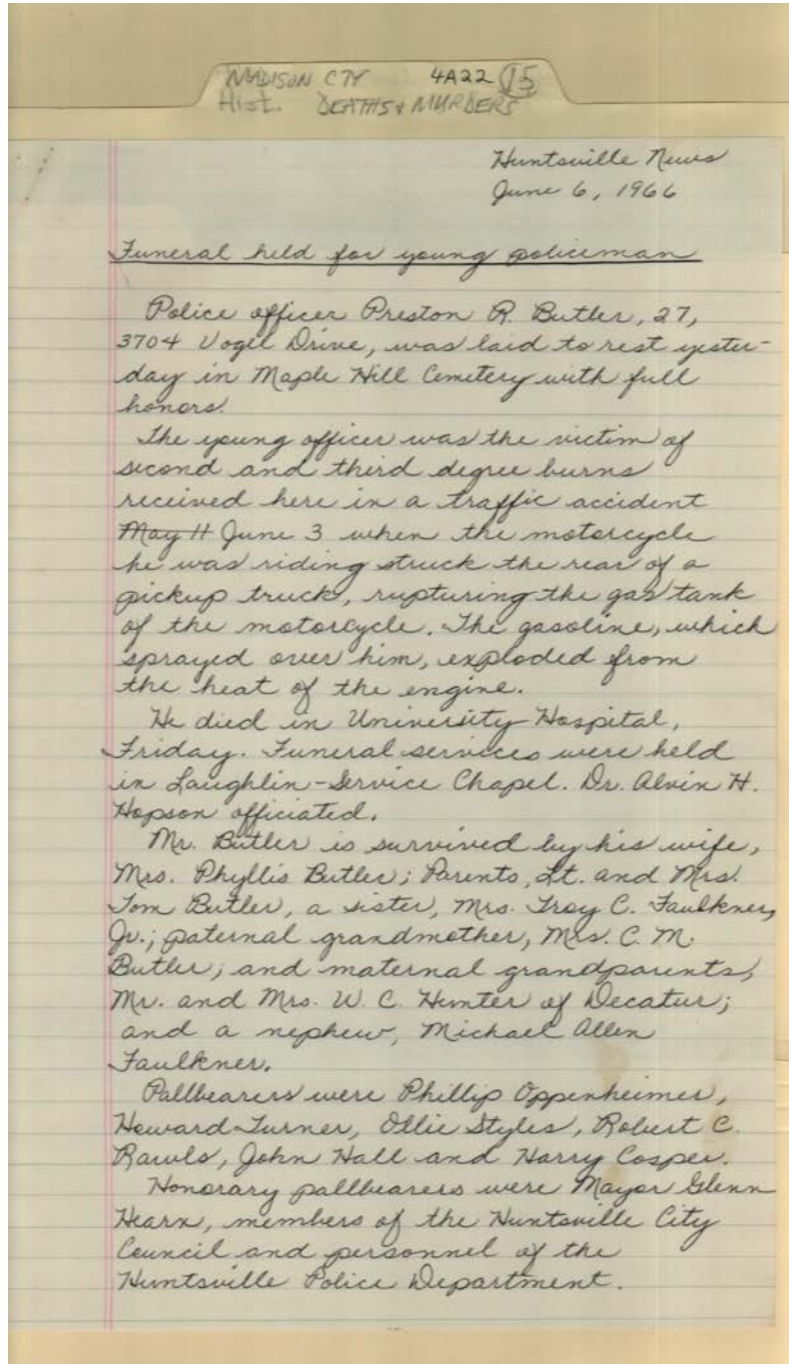 MADISON CTY 4A22 15
Hist. DEATHS & MURDERS
Huntsville News
June 6, 1966
Funeral held for young policeman
Police officer Preston R. Butler, 27,
3704 Vogel Drive, was laid to rest yester-
day in Maple Hill Cemetery with full
honors.
The young officer was the victim of
second and third degree burns
received here in a traffic accident
May 11 June 3 when the motorcycle
he was riding struck the rear of a
pickup truck, rupturing the gas tank
of the motorcycle. The gasoline, which
sprayed over him, exploded from
the heat of the engine.
He died in University Hospital,
Friday. Funeral services were held
in Laughlin-Service Chapel. Dr. Alvin H.
Hopson officiated.
Mr. Butler is survived by his wife,
Mrs. Phyllis Butler; Parents, Lt. and Mrs.
Tom Butler, a sister, Mrs. Troy C. Faulkner,
Jr.; paternal grandmother, Mrs. C. M.
Butler; and maternal grandparents,
Mr. and Mrs. W. C. Hunter of Decatur;
and a nephew, Michael Allen
Faulkner.
Pallbearers were Phillip Oppenheimer,
Howard Turner, Ollie Styles, Robert C.
Rawls, John Hall and Harry Cosper.
Honorary pallbearers were Mayor Glenn
Hearn, members of the Huntsville City
Council and personnel of the
Huntsville Police Department.